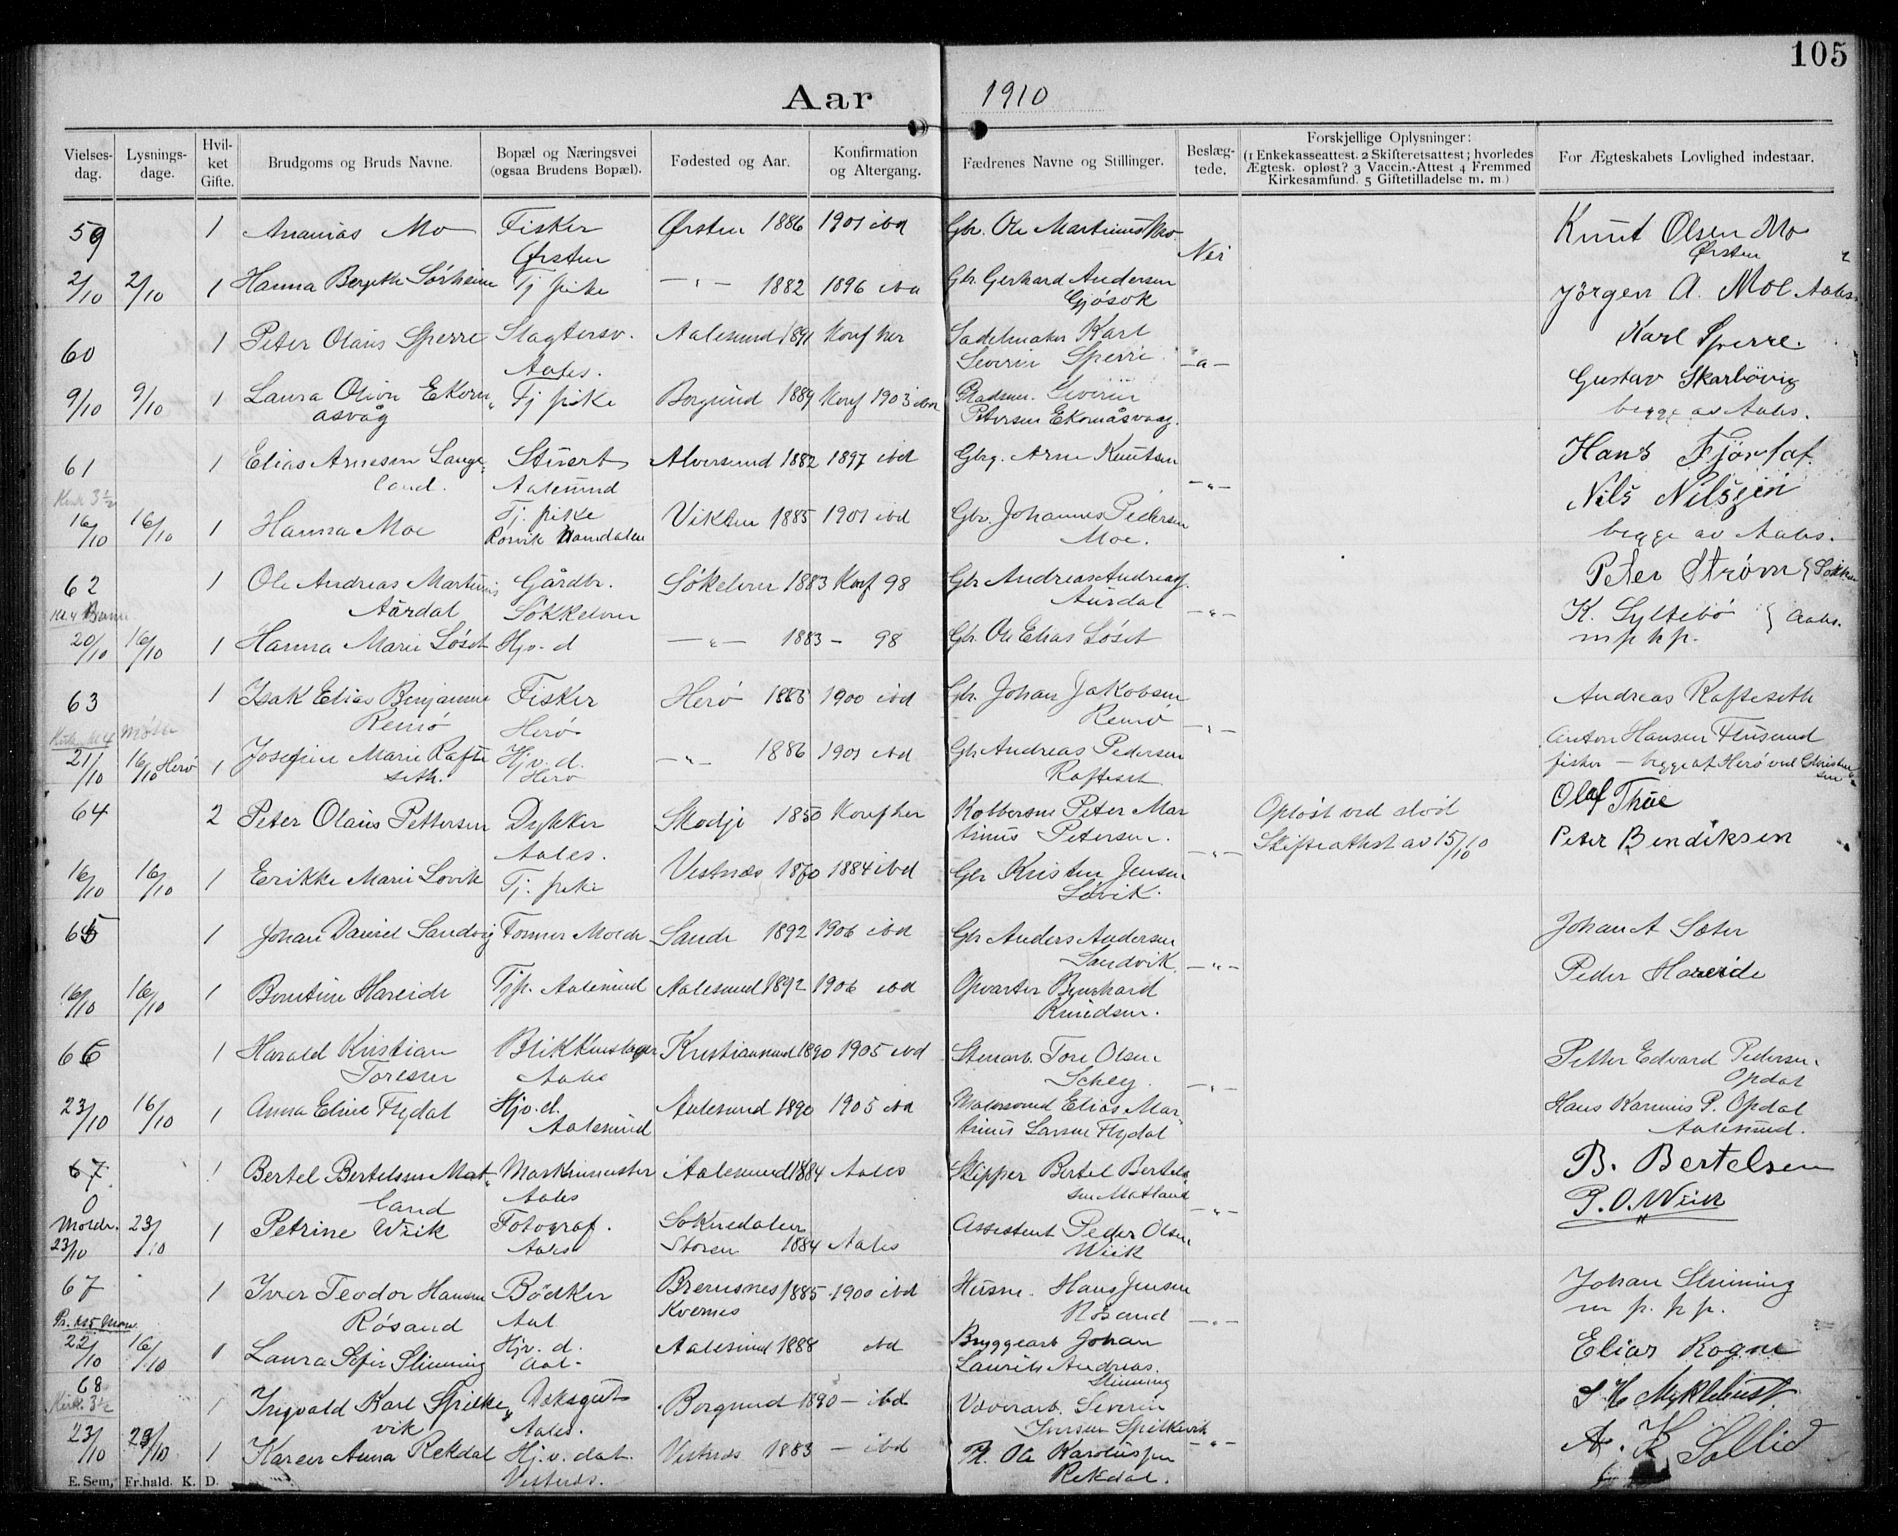 105
Aar 1910
Vielses-dag. Lysnings-dage. Hvil-ket Gifte. Brudgoms og Bruds Navne. Bopæl og Næringsvei (ogsaa Brudens Bopæl). Fødested og Aar. Konfirmation og Altergang. Fædrenes Navne og Stillinger. Beslæg-tede. Forskjellige Oplysninger: (1 Enkekasseattest. 2 Skifteretsattest; hvorledes Ægtesk. opløst? 3 Vaccin.-Attest 4 Fremmed Kirkesamfund. 5 Giftetilladelse m. m.) For Ægteskabets Lovlighed indestaar.
59 1 Ananias Mo Fisker Ørsten 1886 1901 ibd Gbr. Ole Martinus Mo Knut Olsen Mo
Ørsten Nei Ørsten
2/10 2/10 1 Hanna Sørheim Tj pike —"— 1882 1896 ibd Gbr. Gerhard Andersen Jörgen A. Moe Aales.
Gjøsok
60 1 Peter Olaus Sperre Slagtersv. Aalesund 1891 Konf her Sadelmaker Karl Karl Sperre.
Aales. Severin Sperre —"—
9/10 9/10 1 Laura Olivie Ekorn Tj pike Borgund 1889 Konf 1903 ibd Severin Gustav Skarbövig
asvåg Petersen Ekornåsvaag. begge av Aales.
61 1 Elias Arnesen Lange Stuert Alversund 1882 1897 ibd Gbrg. Arne Knutsen Hans Fjörtof.
land. Aalesund —"—
Kirk 3½ Nils Nilssen
16/10 16/10 1 Hanna Moe Tj. pike Vikten 1885 1901 ibd Gbr. Johannes Pedersen
Rørvik Namdalen Moe. begge av Aales.
62 1 Ole Andreas Martinus Gårdbr. Søkelven 1883 Konf 98 Gbr Andreas Andreas. Peter Strøm
Aurdal Søkkelven Aurdal —"— K. Syltebö Aales.
20/10 16/10 1 Hanna Marie Løset Hjv. d —"— 1883 — 98 Gbr. Ole Elias Løset m p h p.
63 1 Isak Elias Benjamin Fisker Herø 1885 1900 ibd Gbr. Johan Jakobsen Andreas Rafteseth
Remø Herø Remø —"—
21/10 16/10 Herø 1 Josefine Marie Rafte Hjv. d. —"— 1886 1901 ibd Gbr Andreas Pedersen Anton Hansen Flusund
seth. Herø Rafteset fisker — begge af Herø
64 2 Peter Olaus Pettersen Dykker Skodje 1850 Konf her Kobbersm Peter Mar Opløst ved død Olaf Thue
Aales. tinus Petersen. —"— Skifteattest av 15/10 10 Peter Bendiksen
16/10 16/10 1 Erikke Marie Løvik Tj. pike Vestnæs 1860 1884 ibd Gbr Kristen Jensen
Løvik.
65 1 Johan Daniel Sandvig Former Molde Sande 1892 1906 ibd Gbr Anders Andersen Johan A Sæter
Sandvik —"—
16/10 16/10 1 Bentine Hareide Tjp. Aalesund Aalesund 1892 1906 ibd Opvarter Bernhard Peder Hareide
Knudsen.
66 1 Harald Kristian Blikkenslager Kristiansund 1890 1905 ibd Stenarb. Tore Olsen Petter Edvard Pedersen
Toresen Aales —"— Opdal
23/10 16/10 1 Anna Eline Flydal Hjv. d. Aalesund 1890 1905 ibd Malersvend Elias Mar Hans Karinius P. Opdal
Aalesund tinus Larsen Flydal Aalesund.
67 1 Bertel Bertelsen Mat Maskinmester Aalesund 1884 Aales Skipper Bertel Bertel B. Bertelsen
0 land Aales sen Matland
Molde. 23/10 1 Petrine Wiik Fotograf. Soknedalen Assistent Peder Olsen P. O. Wiik
23/10 Aales Støren 1884 Aales Wiik —"—
67 1 Iver Teodor Hansen Bödker Bremsnes 1885 1900 ibd Husm. Hans Jensen Johan Slinning
Røsand Aal Kvernes Røsand —"— m p. h p.
22/10 16/10 1 Laura Sefie Slinning Hjv. d. Aalesund 1888 ibd Bryggearb Johan Elias Rogne
Aal. Laurits Andreas.
Slinning
68
Kirk. 3½ 1 Ingvald Karl Spilke Deksgut Borgund 1890 — ibd Væverarb. Severin Myklebust
vik Aales. Spilkevik
23/10 23/10 1 Karen Anna Rekdal Hj. v. dat. Vestnes 1883 — ibd Ole Karolussen —"— A. K Sollid
Vestnes. Rekdal.
E. Sem, Fr.hald. K. D.